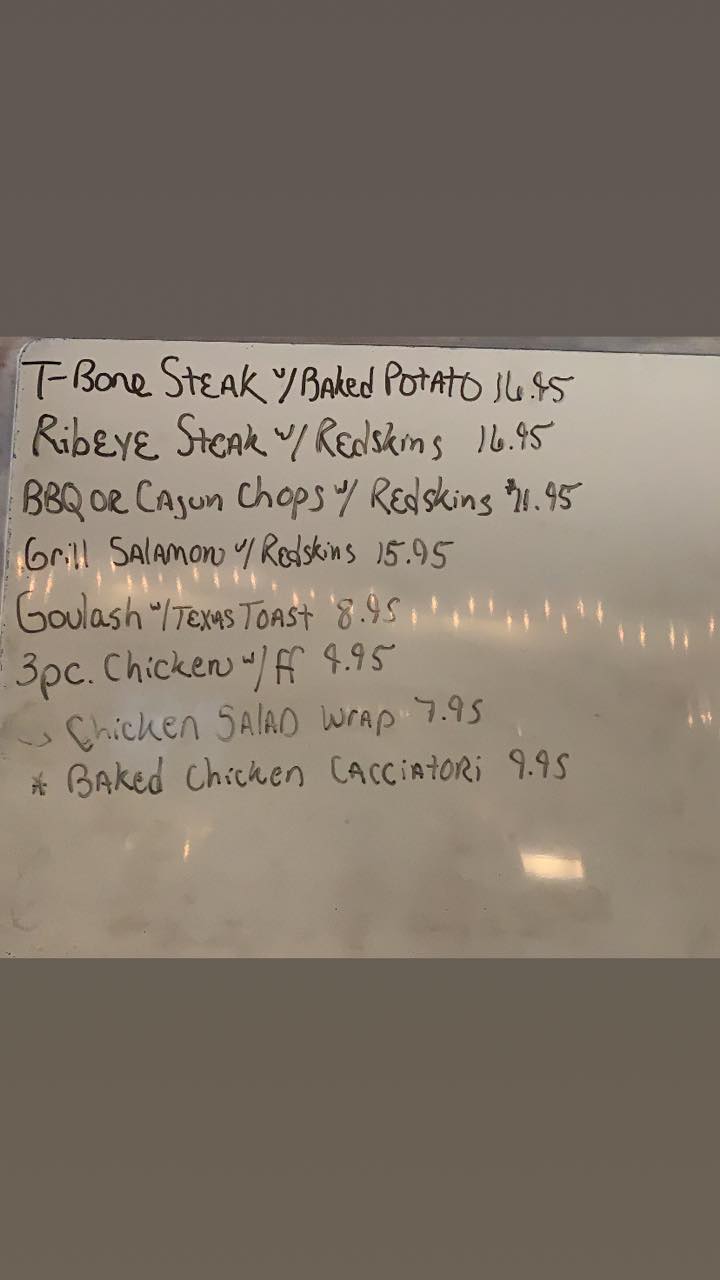 T-Bone Steak w/ Baked Potato 16.95
Ribeye Steak w/ Redskins 16.95
BBQ or Cajun Chops w/ Redskins $11.95
Grill Salamon w/ Redskins 15.95
Goulash w/ Texas Toast 8.95
3pc. Chicken w/ ff 9.95
Chicken Salad Wrap 7.95
* Baked Chicken Cacciatori 9.95